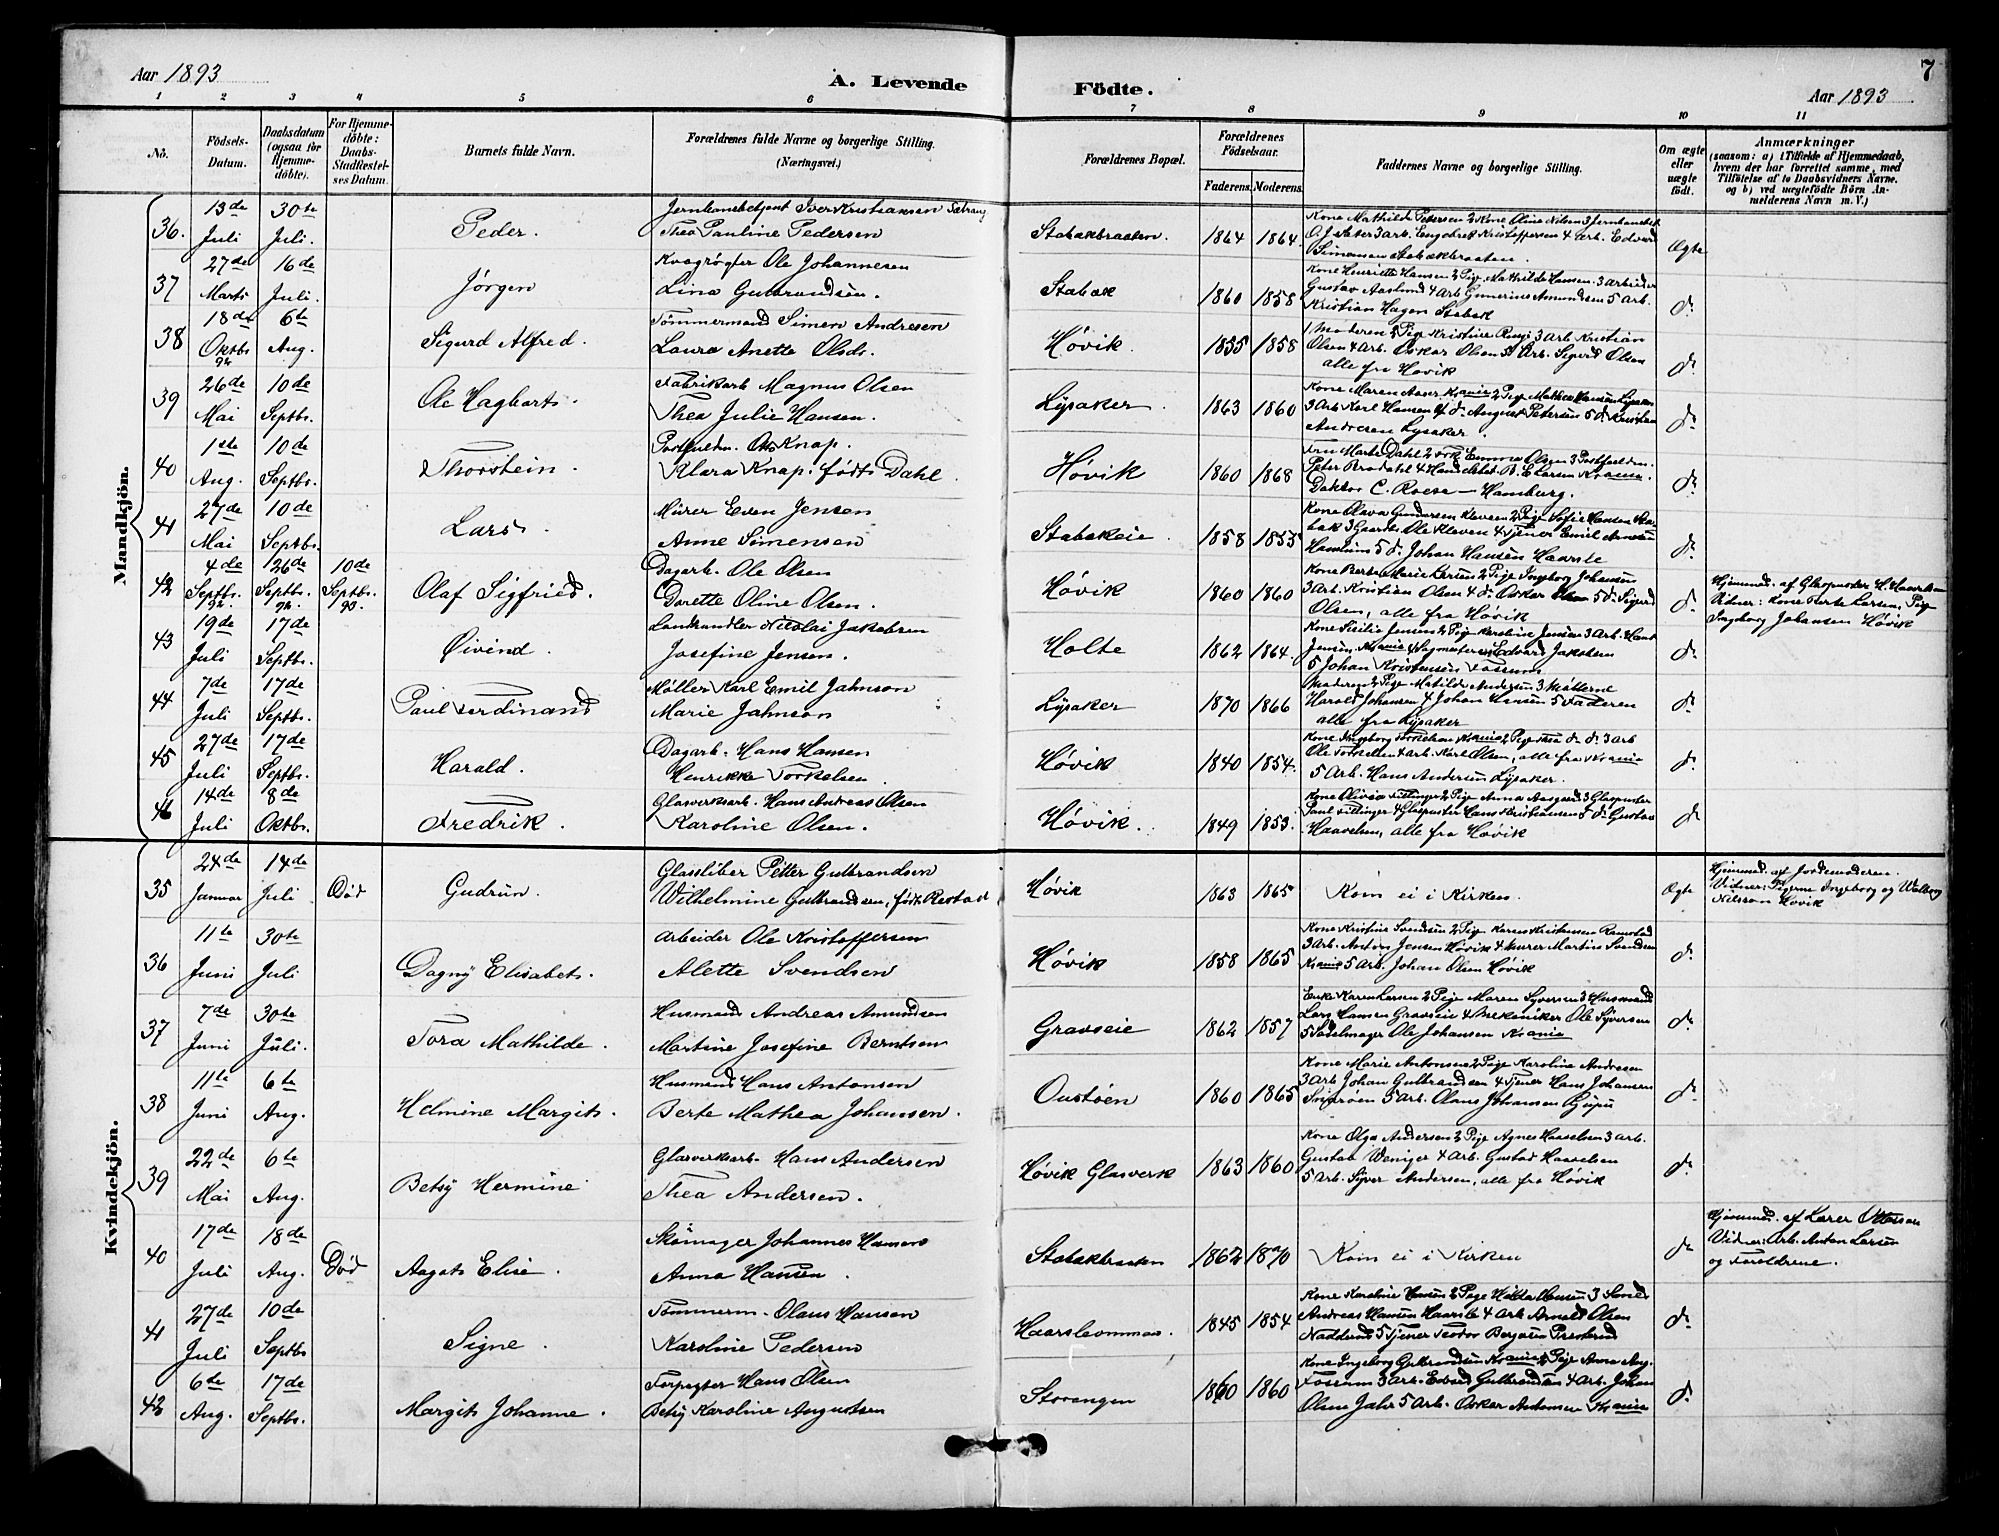 Aar 1893
A. Levende Födte.
7
Aar 1893
1 2 3 4 5 6 7 8 9 10 11
No.
Födsels-Datum.
Daabsdatum (ogsaa for Hjemme-döbte).
For Hjemme-döbte: Daabs-Stadfæstel-ses Datum.
Barnets fulde Navn.
Forældrenes fulde Navne og borgerlige Stilling. (Næringsvei.)
Forældrenes Bopæl.
Forældrenes Födselsaar.
Faderens. Moderens.
Faddernes Navne og borgerlige Stilling.
Om ægte eller uægte födt.
Anmærkninger
(saasom: a) i Tilfælde af Hjemmedaab, hvem der har forrettet samme, med Tilföielse af to Daabsvidners Navne. og b) ved uægtefödte Börn An-melderens Navn m. V.)
Mandkjön.
36. 13de Juli 30te Juli. Peder. Jernbanebetjent Iver Kristiansen
Thea Pauline Pedersen Stabækbraaten. 1864 1864 Kone Mathilde Petersen 2 Kone Oline Nilsen 3 Jernbanebetj.
3 Arb. Engebret Kristoffersen 4 Arb. Edvard
Simensen Stabækbraaten. Ægte
37 27de Marts 16de Juli. Jørgen Kvægrøgter Ole Johannesen
Lina Gulbrandsen. Stabæk 1860 1858 Kone Henriette Hansen 2 Pige Mathilde Hansen 3 Arbeider
Gustav Aaslund 4 Arb. Gunerius Amundsen 5 Arb.
Kristian Hagen Stabæk do
38 18de Oktbr 92 6te Aug. Sigurd Alfred. Tømmermand Simen Andresen
Laura Anette Olsdr. Høvik. 1855 1858 1 Moderen 2 Pige Kristine 3 Arb Kristian
Olsen 4 Arb. Oskar Olsen 5 Arb. Sigurd Olsen
alle fra Høvik do
39 26de Mai 10de Septbr. Ole Hagbart. Fabrikarb Magnus Olsen
Thea Julie Hansen. Lysaker. 1863 1860 Kone Maren Krania 2 Pige Mathea Hansen Lysaker
3 Arb Karl Hansen 4 do August Petersen 5 do Kristian
Andresen Lysaker. do
40 1ste Aug. 10de Septbr. Thorstein. Postfuldm. Otto Knap.
Klara Knap. født Dahl. Høvik 1860 1868 Fru Marte Dahl 2 Frk Emma Olsen 3 Postfuldm.
Peter Brodahl 4 Handelsbet. B. E. Larsen Krania.
Doktor C. Roese — Hamburg. do
41 27de Mai 10de Septbr. Lars. Murer Even Jensen
Anne Simensen Stabækeie. 1858 1853 Kone Olava Gundersen Kleven 2 Pige Sofie Hansen Sta-
bæk 3 Gaardb. Ole Kleven 4 Tjener Emil
5 do Johan Hansen do
42 4de Septbr. 92. 26de Septbr. 92 10de Septbr. 93. Olaf Sigfried. Dagarb. Ole Olsen
Dorette Oline Olsen. Høvik 1860 1860 Kone Berte Marie Larsen 2 Pige Ingeborg Johansen
3 Arb. Kristian Olsen 4 do Oskar Olsen 5 do Sigurd
Olsen, alle fra Høvik do Hjemmed. af Glaspuster H.
Vidner: Kone Berte Larsen, Pige
Ingeborg Johansen Høvik
43 19de Juli 17de Septbr. Øivind. Landhandler Nikolai Jakobsen
Josefine Jensen. Holte 1862 1864. Kone Sesilie Jensen 2 Pige Karoline Jensen 3 Arb. Hans
Jensen Krania 4 Edvard Jakobsen
5 Johan Kristensen Fossum. do
44 7de Juli 17de Septbr. Paul Ferdinand Møller Karl Emil Jahnson
Marie Jahnson Lysaker 1870 1866 Moderen 2 Pige Matilde Andersen 3 Møllerne
Harald Johansen 4 Johan Hansen 5 Faderen
alle fra Lysaker do
45 27de Juli 17de Septbr. Harald. Dagarb. Hans Hansen
Henrikke Torkelsen. Høvik 1840 1854. Kone Ingeborg Torkelsen Krania 2 Pige do do 3 Arb
Ole Torkelsen 4 Arb. Karl Olsen, alle fra Krania
5 Arb. Hans Andersen Lysaker. do
46 14de Juli 8de Oktbr. Fredrik. Glasverksarb. Hans Andreas Olsen
Karoline Olsen. Høvik. 1849 1853. Kone Olivia Fillinger 2 Pige Anna Aasgaard 3 Glaspuster
Paul Fillinger 4 Glaspuster Hans Kristiansen 5 do Gustav
Haavelsen, alle fra Høvik do
Kvindekjön.
35 24de Januar 14de Juli Død Gudrun. Glassliber Petter Gulbrandsen
Wilhelmine Gulbrandsen, født Restad Høvik 1863 1865 Kom ei i Kirken. Ægte Hjemmed. af Jordemoderen.
Vidner: Pigerne Ingeborg og Walborg
Nilsson Høvik
36 11te Juni 30te Juli Dagny Elisabet. Arbeider Ole Kristoffersen
Alette Svendsen Høvik 1858 1865 Kone Kristine Svendsen 2 Pige Karen Kristensen Ramstad
3 Arb. Anton Jensen Høvik 4 Murer Martin Svendsen
Krania 5 Arb. Johan Olsen Høvik do
37 7de Juni 30te Juli. Tora Mathilde. Husmand Andreas Amundsen
Martine Josefine Berntsen Gravseie 1862 1857 Enke Karen Larsen 2 Pige Maren Syversen 3 Husmand
Lars Hansen Gravseie 4 Mekaniker Ole Syversen
5 Sadelmager Ole Johansen Krania do
38 11te Juni 6te Aug. Helmine Margit. Husmand Hans Antonsen
Berte Mathea Johansen. Oustøen 1860 1865 Kone Marie Antonsen 2 Pige Karoline Andresen
3 Arb Johan Gulbrandsen 4 Tjener Hans Johansen
5 Arb. Olaus Johansen do
39 22de Mai 6te Aug. Betsy Hermine Glasverksarb. Hans Andersen
Thea Andersen. Høvik Glasverk 1863 1860 Kone Olga Andersen 2 Pige Agnes Haavelsen 3 Arb.
Gustav Weniger 4 Arb. Gustav Haavelsen
5 Arb. Syver Andersen, alle fra Høvik do
40 17de Juli 18de Aug. Død Aagot Elise. Skomager Johannes Hansen
Anna Hansen. Stabækbraaten 1862 1870 Kom ei i Kirken do Hjemmed. af Lærer Ottesen
Vidner: Arb. Anton Larsen
og Forældrene.
41 27de Juli 10de Septbr Signe. Tømmerm. Olaus Hansen
Karoline Pedersen 1845 1854 Kone Karoline Hansen 2 Pige Hilda Hansen 3 Smed
Andreas Hansen 4 Arb Arnold Olsen
Nadderud 5 Tjener Teodor Presterud do
42 6te Aug. 17de Septbr. Margit Johanne. Forpagter Hans Olsen
Betsy Karoline Augustsen Storengen 1860 1860 Kone Ingeborg Gulbrandsen Krania 2 Pige Anna Aug.
Fossum 3 Arb. Edvard Gulbrandsen 4 Arb. Johan
Olsen Jahr 5 Arb. Oskar Andersen Krania do